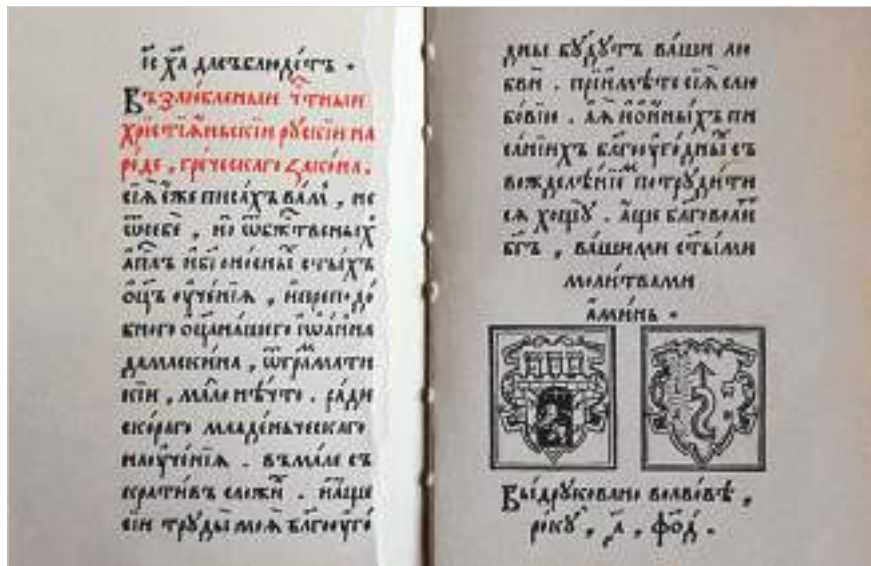 і҃с х҃а да съблюдѐтъ .
Възлюбленыи ч҃тныи
хрістїа́ньскїи ру́скїи на
ро́де , гре́ческаго зако́на .
сїѧ̀ е́же писа́хъ ва́мъ , не
ѿ себѐ , но ѿ бж҃твеныⷯ
а҆пⷭ҇лъ и҆ бг҃оно́сныⷯ ст҃ы́хъ
ѻ҆ц҃ъ ᲂу҆че́нїѧ , и҆ преподо́
бнаго ѻ҆ц҃а на́шего і҆ѡа́нна
дамаски́на , ѿ грама́ти
кїи , ма́ло нѣ́что . ра́ди
ско́раго младе́ньческаго
наᲂуче́нїѧ . въма́ле съ
крати́въ сложи́ⷯ . и҆ а́ще
сїи труды̀ моѧ̀ бл҃гоᲂуго́
дны бу́дутъ ва́ши лю
бви́ . прїимѣ́те сїѧ̀ с лю
бо́вїю . а҆ ꙗ҆̀ и҆ ѡ҆ и҆ны́хъ пи
са́нїихъ бл҃гоᲂуго́дныⷯ съ
вожделѣ́нїеⷨ потруди́ти
сѧ хощу̀ . а҆́ще бл҃говоли́т
бг҃ъ , ва́шими ст҃ы́ми
моли́твами
а҆ми́нь .
Вы́друковано во львовѣ ,
ро́ку , ҂а҃ , ф҃о҃д҃ .